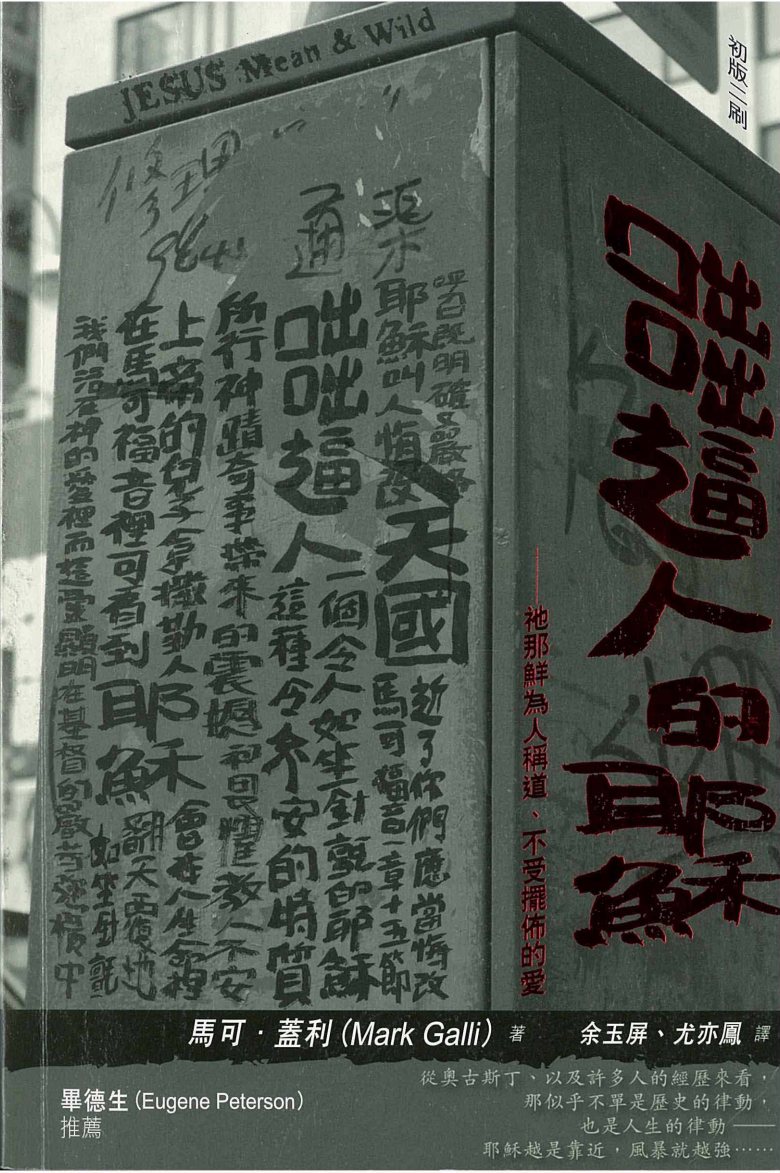 JESUS Mean & Wild
初版三刷
修理
通渠
呼召既明確又嚴峻
耶穌叫人悔改
天國
近了你們應當悔改
馬可福音一章十五節
一個令人如坐針氈的耶穌
咄咄逼人
這種令人不安的特質
所行神蹟奇事帶來的震撼和畏懼教人不安
上帝的兒子拿撒勒人耶穌會在人生命裡
在馬可福音裡可看到耶穌翻天覆地
如坐針氈
我們活在神的愛裡而這愛顯明在基督的嚴苛
咄咄逼人的耶穌
——祂那鮮為人稱道、不受擺佈的愛
馬可．蓋利(Mark Galli) 著
余玉屏、尤亦鳳 譯
畢德生(Eugene Peterson)
推薦
從奧古斯丁、以及許多人的經歷來看，
那似乎不單是歷史的律動，
也是人生的律動——
耶穌越是靠近，風暴就越強……